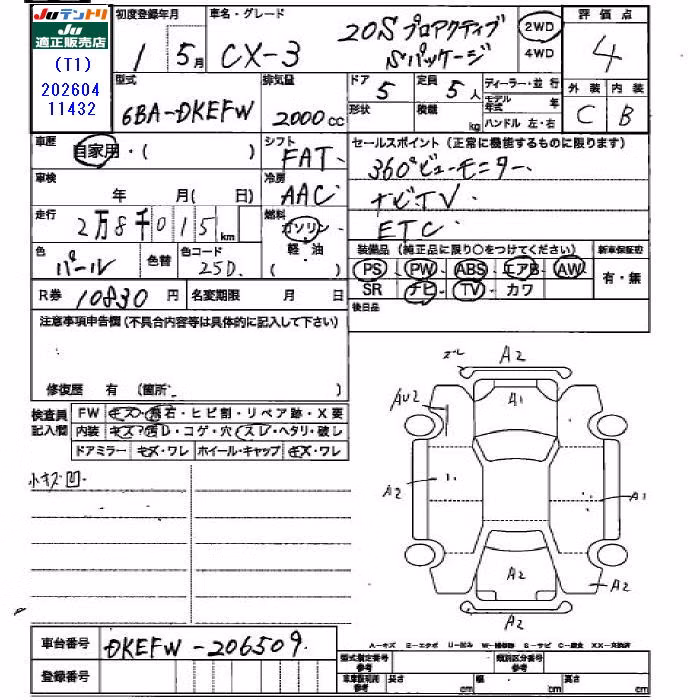 Juテントリ
Ju
適正販売店
(T1)
202604
11432
初度登録年月
1 5月
車名・グレード
CX-3 20S プロアクティブ
Sパッケージ
2WD
4WD
評価点
4
型式
6BA-DKEFW
排気量
2000cc
ドア 5
形状
定員 5人
積載 kg
ディーラー・並行
モデル年式 年
ハンドル 左・右
外装 内装
C B
車歴
自家用・( )
シフト
FAT
セールスポイント(正常に機能するものに限ります)
360°ビューモニター
ナビTV
ETC
車検
年 月( 日)
冷房
AAC
走行
2万8千015km
燃料
ガソリン
軽・油
( ・ )
色
パール
色替
色コード
25D
装備品(純正品に限り○をつけてください)
新車保証書
PS PW ABS エアB AW
SR ナビ TV カワ
有・無
後日品
R券 10830円
名変期限 月 日
注意事項申告欄(不具合内容等は具体的に記入して下さい)
修復歴 有 (箇所 )
検査員
記入欄
FW キズ・飛石・ヒビ割・リペア跡・X要
内装 キズ・凹・コゲ・穴・スレ・ヘタリ・破し
ドアミラー キズ・ワレ ホイール・キャップ キズ・ワレ
小キズ凹
A2
A1
AU2
A2
A1
A2
A2
A2
車台番号
DKEFW-206509
登録番号
A-キズ E-エクボ U-凹み W-補修跡 S-サビ C-腐食 XX-交換済
型式指定番号
参考
類別区分番号
参考
車庫証明用
参考
長さ cm
幅 cm
高さ cm